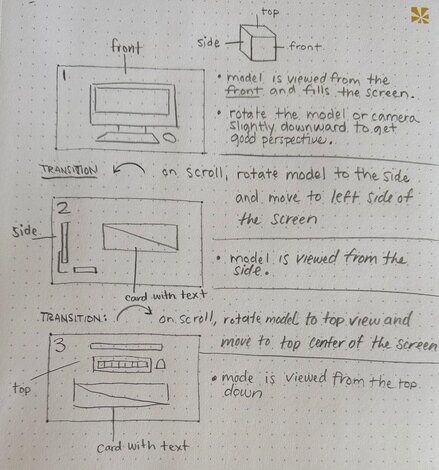 top
side
front
front
1
• model is viewed from the
front and fills the screen.
• rotate the model or camera
slightly downward to get
good perspective.
TRANSITION
on scroll, rotate model to the side
and move to left side of
the screen
2
side
• model is viewed from the
side.
card with text
TRANSITION:
on scroll, rotate model to top view and
move to top center of the screen
3
top
• mode is viewed from the top
down
card with text